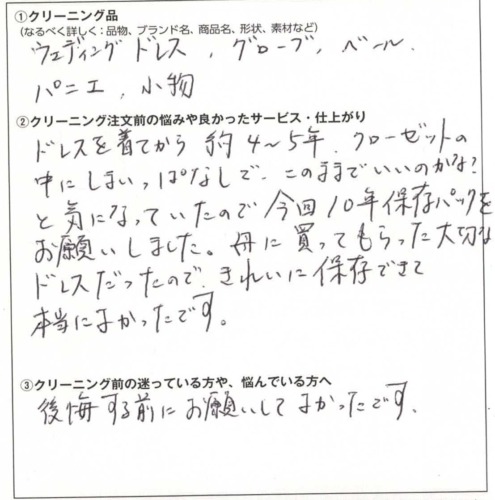 ①クリーニング品
(なるべく詳しく：品物、ブランド名、商品名、形状、素材など)
ウェディングドレス，グローブ，ベール．
パニエ，小物
②クリーニング注文前の悩みや良かったサービス・仕上がり
ドレスを着てから 約4～5年．クローゼットの
中にしまいっぱなしで、このままでいいのかな？
と気になっていたので今回10年保存パックを
お願いしました。母に買ってもらった大切な
ドレスだったので、きれいに保存できて
本当によかったです。
③クリーニング前の迷っている方や、悩んでいる方へ
後悔する前にお願いしてよかったです．